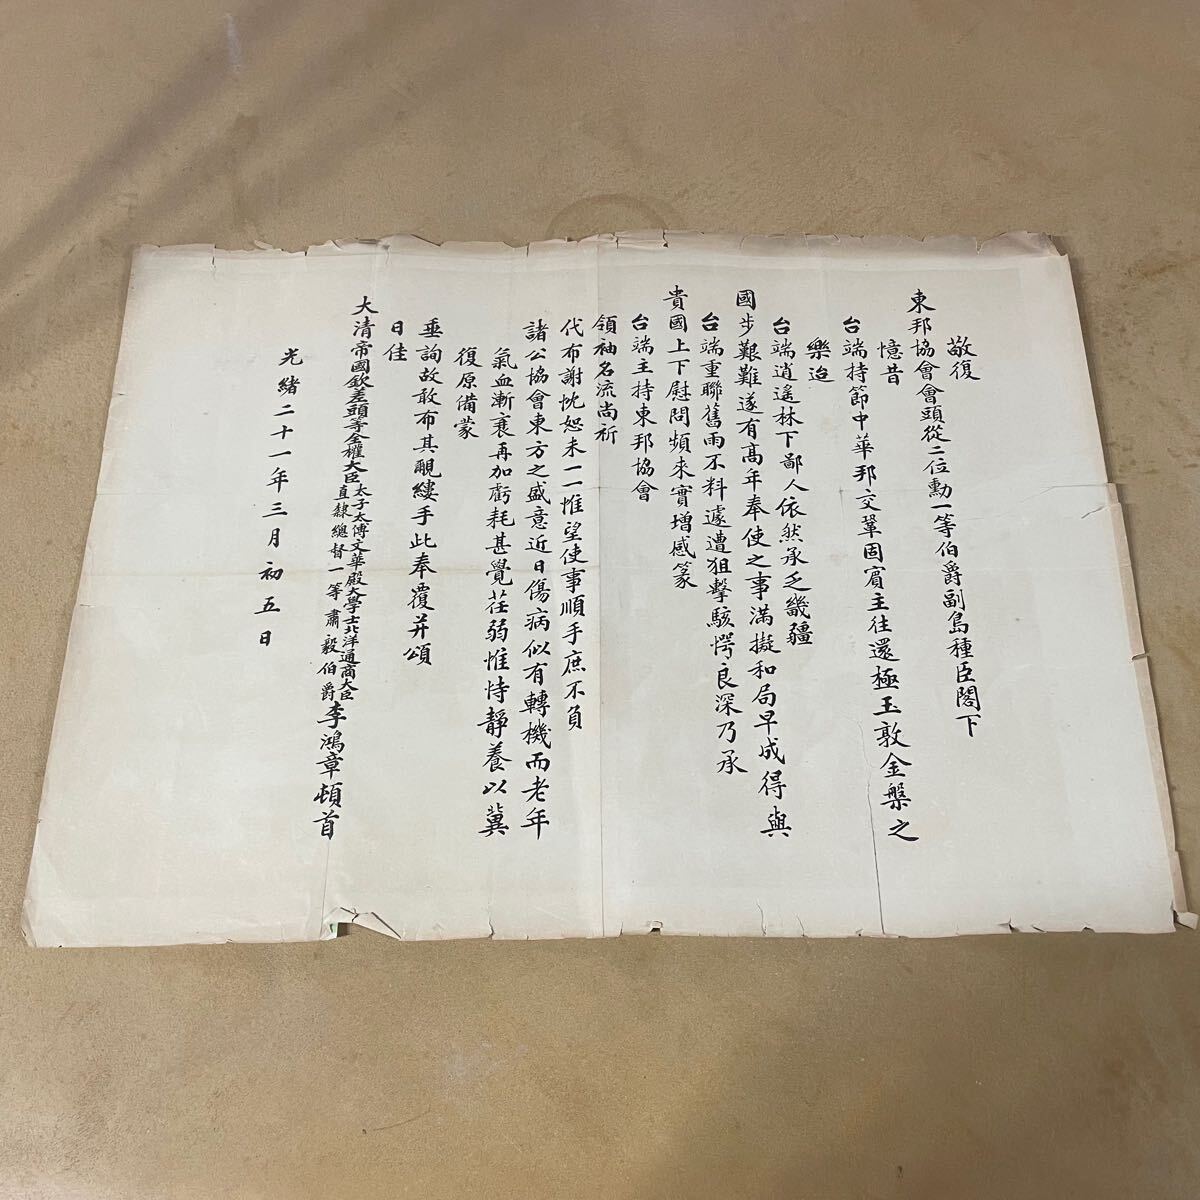 敬復
東邦協會會頭從二位勳一等伯爵副島種臣閣下
憶昔
台端持節中華邦交鞏固賓主往還極玉敦金槃之
樂迨
台端逍遙林下鄙人依然承乏畿疆
國步艱難遂有高年奉使之事滿擬和局早成得與
台端重聯舊雨不料遽遭狙擊駭愕良深乃承
貴國上下慰問頻來實增感篆
台端主持東邦協會
領袖名流尚祈
代布謝忱恕未一一惟望使事順手庶不負
諸公協會東方之盛意近日傷病似有轉機而老年
氣血漸衰再加虧耗甚覺荏弱惟恃靜養以冀
復原備蒙
垂詢故敢布其覼縷手此奉覆并頌
日佳
大清帝國欽差頭等全權大臣太子太傅文華殿大學士北洋通商大臣直隸總督一等肅毅伯爵李鴻章頓首
光緒二十一年三月初五日